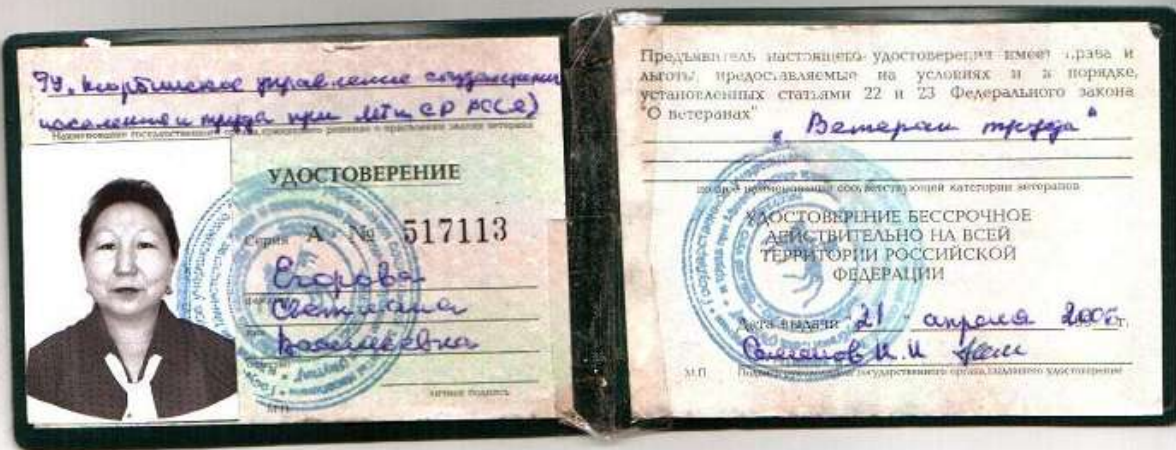 управление
населения и труда при МТ и СР РС(Я)
Наименование государственного органа, принявшего решение о присвоении звания ветерана
УДОСТОВЕРЕНИЕ
Серия А № 517113
Егорова
Светлана
Васильевна
личная подпись
М.П.
Предъявитель настоящего удостоверения имеет права и
льготы, предоставляемые на условиях и в порядке,
установленных статьями 22 и 23 Федерального закона
"О ветеранах"
"Ветеран труда"
наименование соответствующей категории ветеранов
УДОСТОВЕРЕНИЕ БЕССРОЧНОЕ
ДЕЙСТВИТЕЛЬНО НА ВСЕЙ
ТЕРРИТОРИИ РОССИЙСКОЙ
ФЕДЕРАЦИИ
Дата выдачи 21 апреля г.
М.П.
государственного органа, выдавшего удостоверение